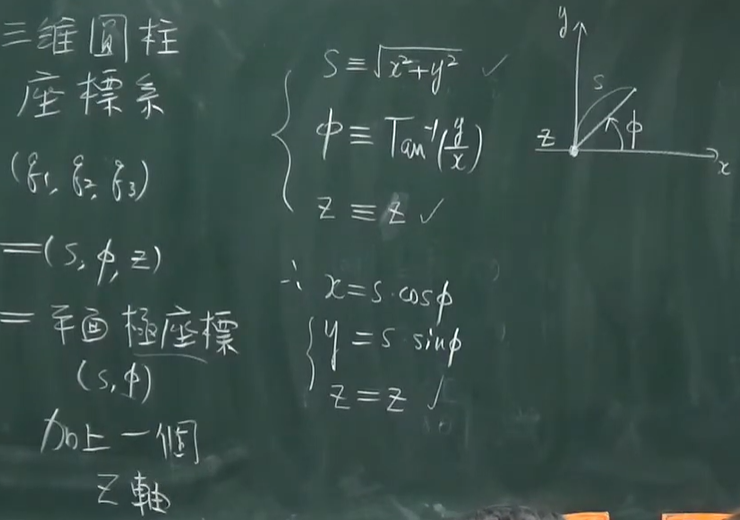 三維圓柱
座標系
(q₁, q₂, q₃)
=(s, φ, z)
= 平面極座標
(s, φ)
加上一個
Z軸
s ≡ √(x²+y²) ✓
φ ≡ Tan⁻¹(y/x)
z ≡ z ✓
∴ x = s·cosφ
y = s·sinφ
z = z ✓
y
s
z
φ
x